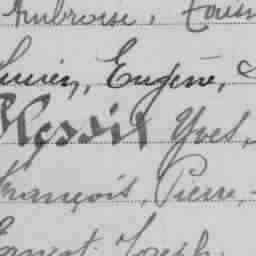 Ambroise,
Lucien, Eugène,
Plessix Yves,
François, Pierre,
Ernest Joseph